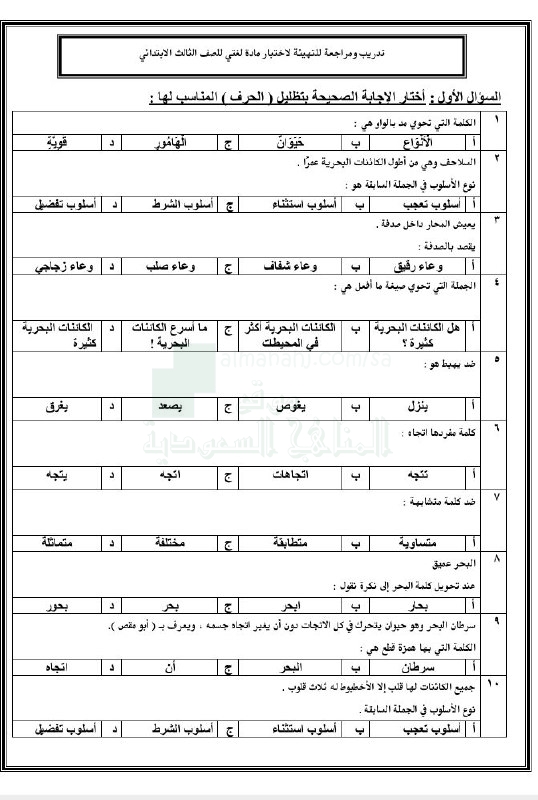 تدريب ومراجعة للتهيئة لاختبار مادة لغتي للصف الثالث الابتدائي
السؤال الأول : أختار الإجابة الصحيحة بتظليل ( الحرف ) المناسب لها :
١ الكلمة التي تحوي مد بالواو هي :
أ الْأَنْوَاع ب حَيَوَانٌ ج الْهَامُور د قَوِيَّةٌ
٢ السلاحف وهي من أطول الكائنات البحرية عمرًا .
نوع الأسلوب في الجملة السابقة هو :
أ أسلوب تعجب ب أسلوب استثناء ج أسلوب الشرط د أسلوب تفضيل
٣ يعيش المحار داخل صدفة .
يقصد بالصدفة :
أ وعاء رقيق ب وعاء شفاف ج وعاء صلب د وعاء زجاجي
٤ الجملة التي تحوي صيغة ما أفعل هي :
أ هل الكائنات البحرية ب الكائنات البحرية أكثر ج ما أسرع الكائنات د الكائنات البحرية
كثيرة ؟ في المحيطات البحرية ! كثيرة
almanahj.com/sa
٥ ضد يهبط هو :
موقع
أ ينزل ب يغوص ج يصعد د يغرق
المناهج السعودية
٦ كلمة مفردها اتجاه :
أ تتجه ب اتجاهات ج اتجه د يتجه
٧ ضد كلمة متشابهة :
أ متساوية ب متطابقة ج مختلفة د متماثلة
٨ البحر عميق
عند تحويل كلمة البحر إلى نكرة نقول :
أ بحار ب ابحر ج بحر د بحور
٩ سرطان البحر وهو حيوان يتحرك في كل الاتجات دون أن يغير اتجاه جسمه ، ويعرف بـ ( أبو مقص ).
الكلمة التي بها همزة قطع هي :
أ سرطان ب البحر ج أن د اتجاه
١٠ جميع الكائنات لها قلب إلا الأخطبوط له ثلاث قلوب .
نوع الأسلوب في الجملة السابقة .
أ أسلوب تعجب ب أسلوب استثناء ج أسلوب الشرط د أسلوب تفضيل